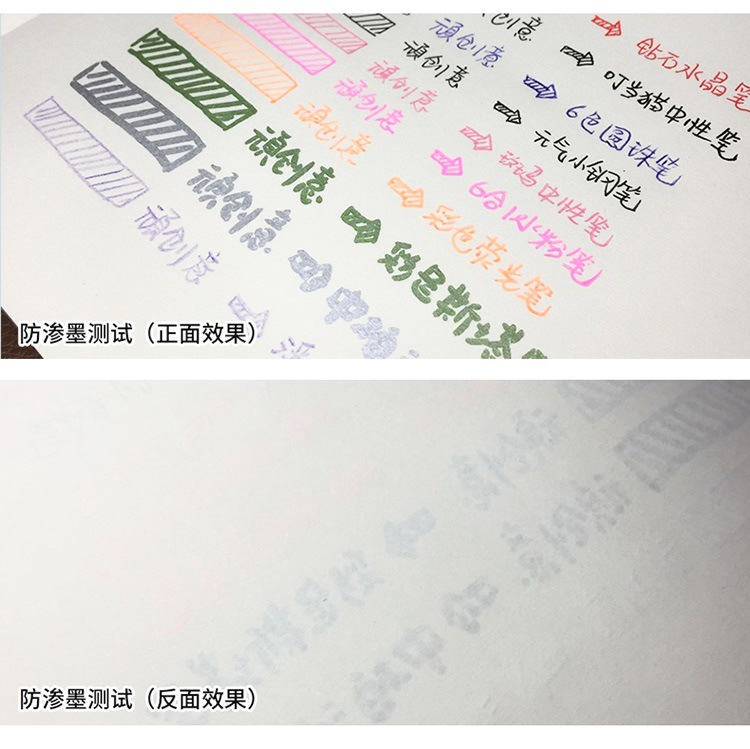 顽创意 钻石水晶笔
顽创意 叮当猫中性笔
顽创意 6色圆珠笔
顽创意 元气小钢笔
顽创意 斑马中性笔
顽创意 6色水粉笔
顽创意 彩色荧光笔
顽创意 彩色斯塔
顽创意 中
顽创意
防渗墨测试（正面效果）
防渗墨测试（反面效果）